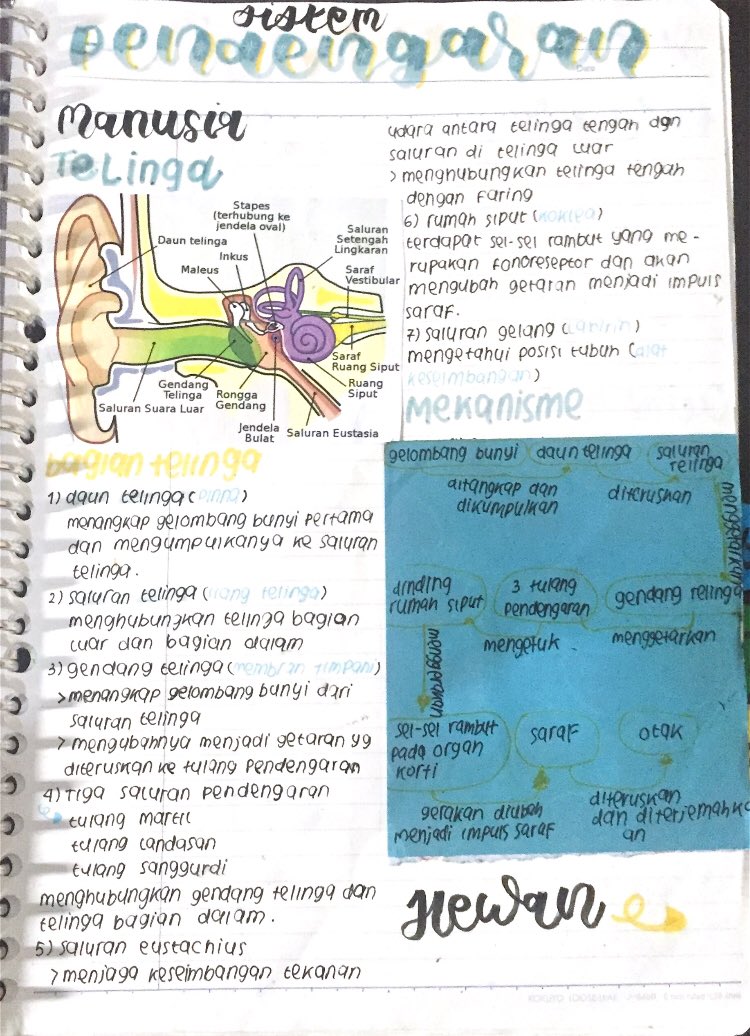 sistem
pendengaran
Manusia
Telinga
Stapes
(terhubung ke
jendela oval)
Daun telinga
Inkus
Maleus
Saluran
Setengah
Lingkaran
Saraf
Vestibular
Saraf
Ruang Siput
Gendang
Telinga
Rongga
Gendang
Ruang
Siput
Saluran Suara Luar
Jendela
Bulat
Saluran Eustasia
bagian telinga
1) daun telinga (pinna)
menangkap gelombang bunyi pertama
dan mengumpulkanya ke saluran
telinga.
2) saluran telinga (liang telinga)
menghubungkan telinga bagian
luar dan bagian dalam
3) gendang telinga (membran timpani)
> menangkap gelombang bunyi dari
saluran telinga
> mengubahnya menjadi getaran yg
diteruskan ke tulang pendengaran
4) Tiga saluran pendengaran
tulang martil
tulang landasan
tulang sanggurdi
menghubungkan gendang telinga dan
telinga bagian dalam.
5) saluran eustachius
> menjaga keseimbangan tekanan
udara antara telinga tengah dgn
saluran di telinga luar
> menghubungkan telinga tengah
dengan Faring
6) rumah siput (koklea)
terdapat sel-sel rambut yang me-
rupakan fonoreseptor dan akan
mengubah getaran menjadi impuls
saraf.
7) saluran gelang (labirin)
mengetahui posisi tubuh (alat
keseimbangan)
Mekanisme
gelombang bunyi
daun telinga
saluran
telinga
ditangkap dan
dikumpulkan
diteruskan
menggetarkan
dinding
rumah siput
3 tulang
pendengaran
gendang telinga
mengetuk
menggetarkan
menggerakan
sel-sel rambut
pada organ
korti
saraf
otak
gerakan diubah
menjadi impuls saraf
diteruskan
dan diterjemahk
an
Hewan